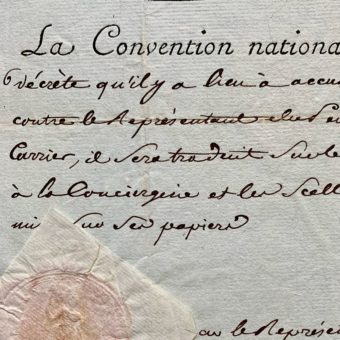 La Convention nationa
décrète qu'il y a lieu à accu
contre le Représentant du Peu
Carrier, il sera traduit sur le
à la Conciergerie et les Scell
mis sur ses papiers
le Représe